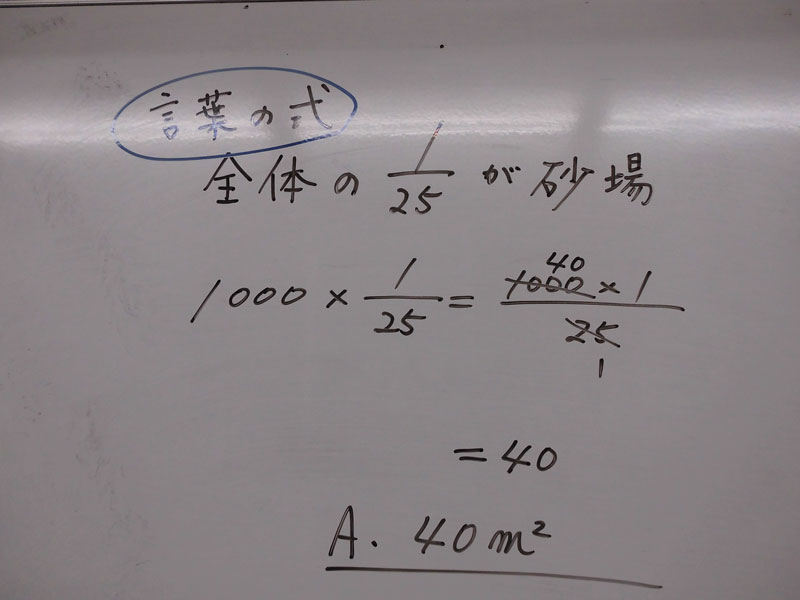 言葉の式
全体の 1/25 が砂場
1000 × 1/25 = 40 1000 × 1 / 25 1
= 40
A. 40m²